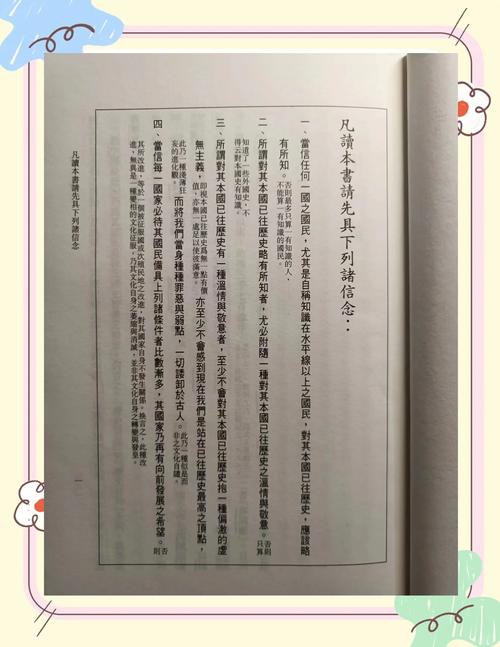 凡讀本書請先具下列諸信念：
一、當信任何一國之國民，尤其是自稱知識在水平線以上之國民，對其本國已往歷史，應該略
有所知。否則最多只算一有知識的人，不能算一有知識的國民。
二、所謂對其本國已往歷史略有所知者，尤必附隨一種對其本國已往歷史之溫情與敬意。否則只算
知道了一些外國史，不得云對本國史有知識。
三、所謂對其本國已往歷史有一種溫情與敬意者，至少不會對其本國已往歷史抱一種偏激的虛
無主義，即視本國已往歷史爲無一點有價值，亦無一處足以使彼滿意。亦至少不會感到現在我們是站在已往歷史最高之頂點，
此乃一種淺薄狂妄的進化觀。而將我們當身種種罪惡與弱點，一切諉卸於古人。此乃一種似是而非之文化自譴。
四、當信每一國家必待其國民備具上列諸條件者比數漸多，其國家乃再有向前發展之希望。否則
其所改進，等於一個被征服國或次殖民地之改進，對其國家自身不發生關係。換言之，此種改
進，無異是一種變相的文化征服，乃其文化自身之萎縮與消滅，並非其文化自身之轉變與發皇。
凡讀本書請先具下列諸信念
一